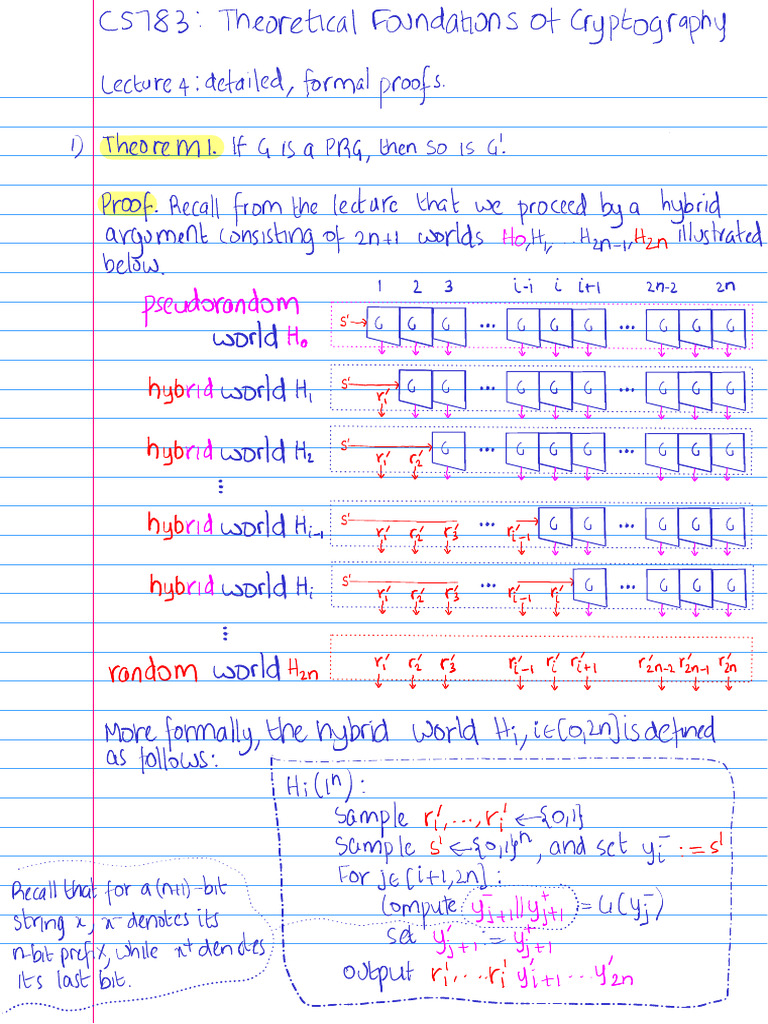 CS783: Theoretical Foundations of Cryptography
Lecture 4: detailed, formal proofs.
1) Theorem 1. If G is a PRG, then so is G'.
Proof. Recall from the lecture that we proceed by a hybrid
argument consisting of 2n+1 worlds H0, H1, ... H2n-1, H2n illustrated
below.
1 2 3 i-i i i+1 2n-2 2n
pseudorandom
world H0
s' G G G ... G G G ... G G G
hybrid world H1
s' r1' G G ... G G G ... G G G
hybrid world H2
s' r1' r2' G ... G G G ... G G G
⋮
hybrid world Hi-1
s' r1' r2' r3' ... ri-1' G G ... G G G
hybrid world Hi
s' r1' r2' r3' ... ri-1' ri' G ... G G G
⋮
random world H2n
r1' r2' r3' ri-1' ri' ri+1' r2n-2' r2n-1' r2n'
More formally, the hybrid world Hi, i∈[0,2n] is defined
as follows:
Hi(1^n):
Sample r1', ..., ri' ← {0,1}
Sample s' ← {0,1}^n, and set yi^- := s'
For j∈[i+1,2n]:
Compute yj+1^- || yj+1^+ = G(yj^-)
set y'j+1 = yj+1^+
output r1' ... ri' y'i+1 ... y'2n
Recall that for a (n+1)-bit
string x, x^- denotes its
n-bit prefix, while x^+ denotes
its last bit.